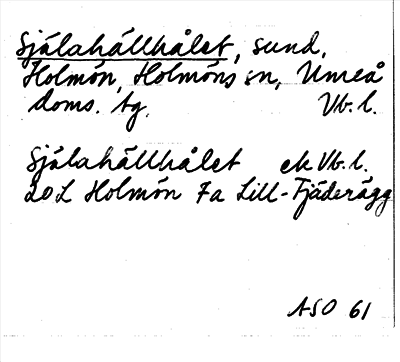 Själahällhålet, sund,
Holmön, Holmöns sn, Umeå
doms. tg. Vb. l.
Själahällhålet ek Vb. l.
20L Holmön 7a Lill-Fjäderägg
ASO 61